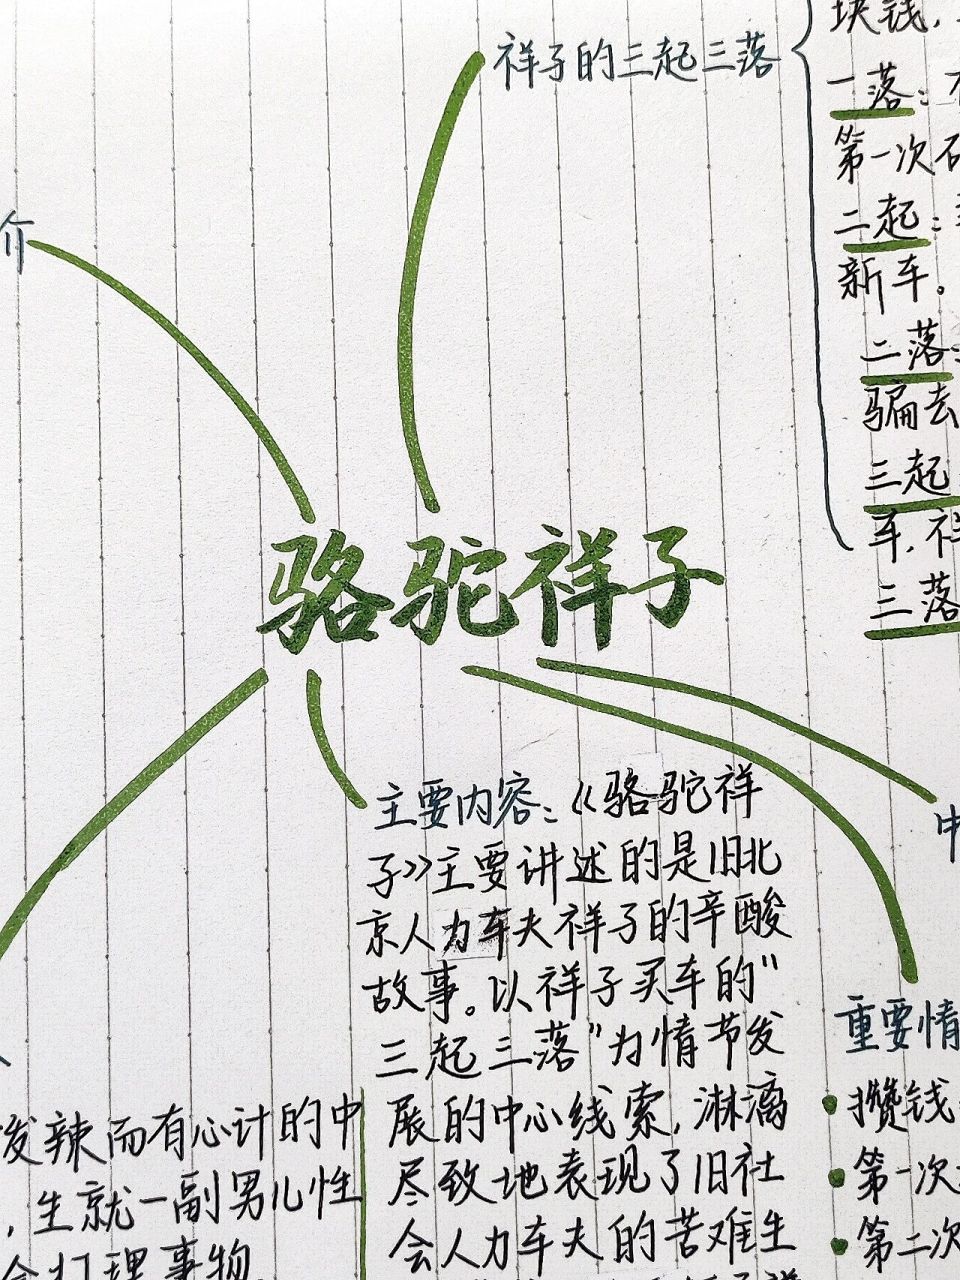 祥子的三起三落
块钱,
一落:
第一次
二起:
新车。
二落:
骗去
三起
车,祥
三落
介
骆驼祥子
主要内容:《骆驼祥
子》主要讲述的是旧北
京人力车夫祥子的辛酸
故事。以祥子买车的"
三起三落"为情节发
展的中心线索,淋漓
尽致地表现了旧社
会人力车夫的苦难生
中
重要情
攒钱
第一次
第二次
发辣而有心计的中
,生就一副男儿性
会打理事物